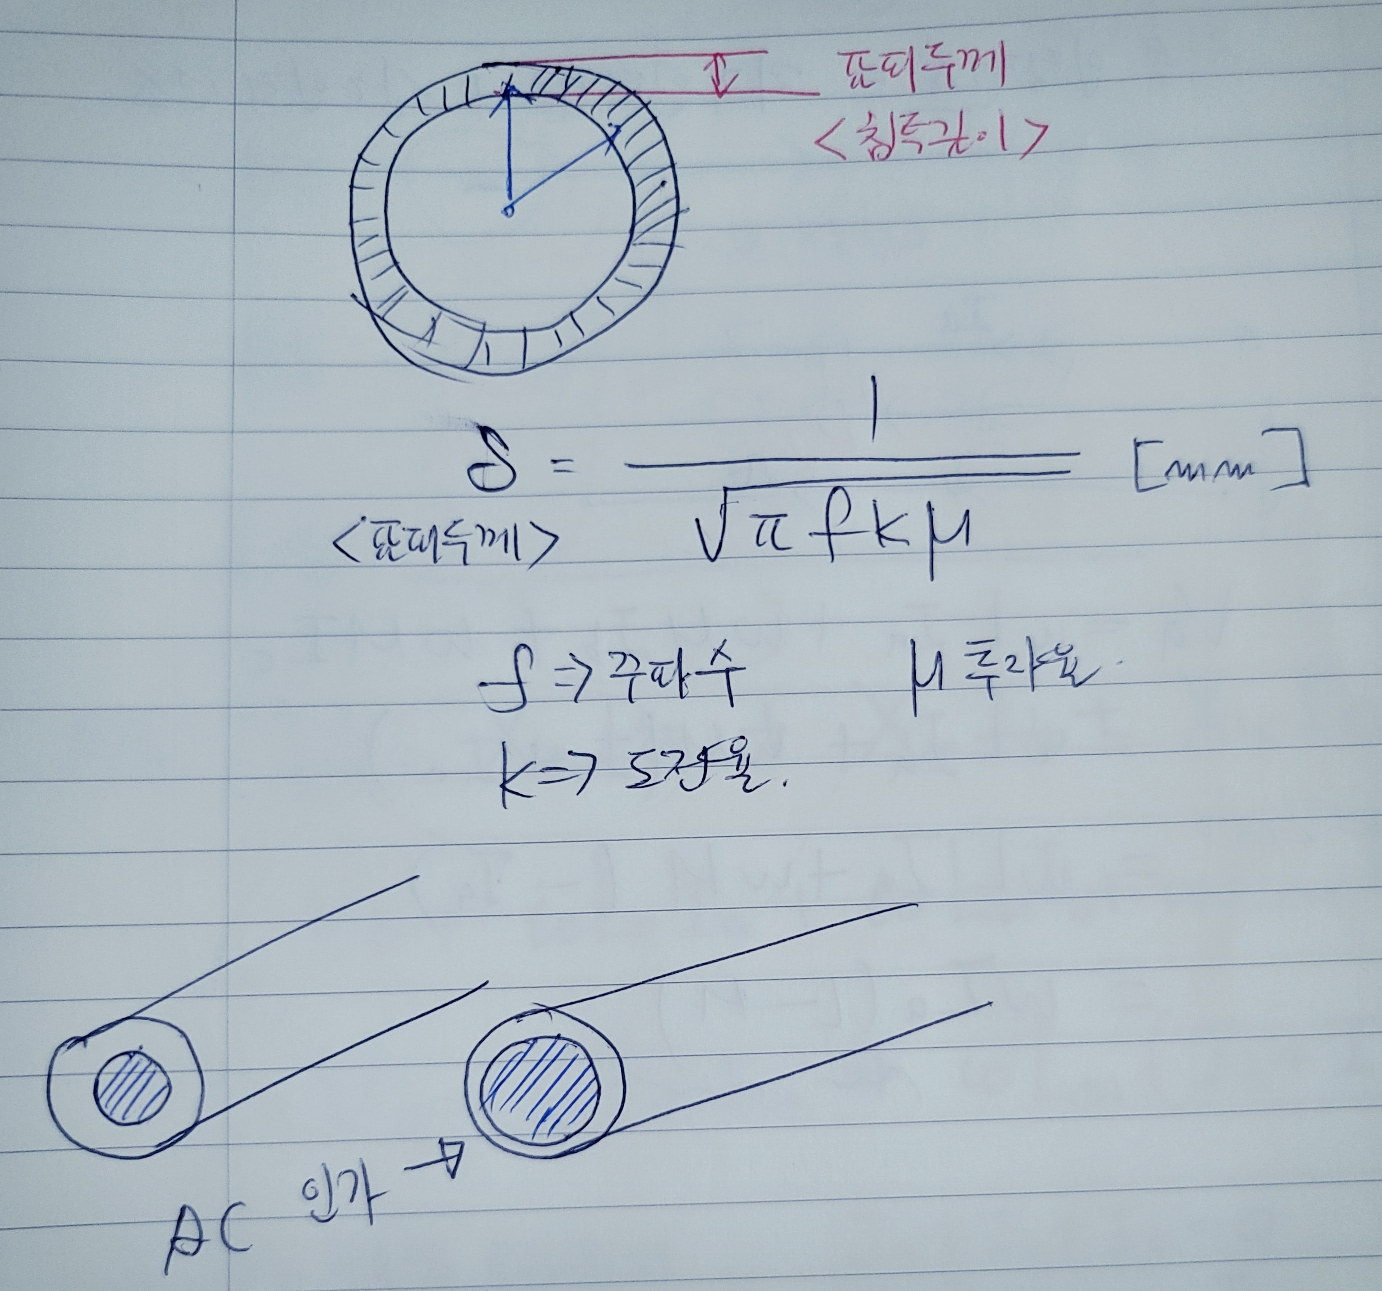 표피두께
<침투깊이>
δ = 1 / √πfkμ [mm]
<표피두께>
f => 주파수 μ 투자율.
k => 도전율.
AC 인가 →